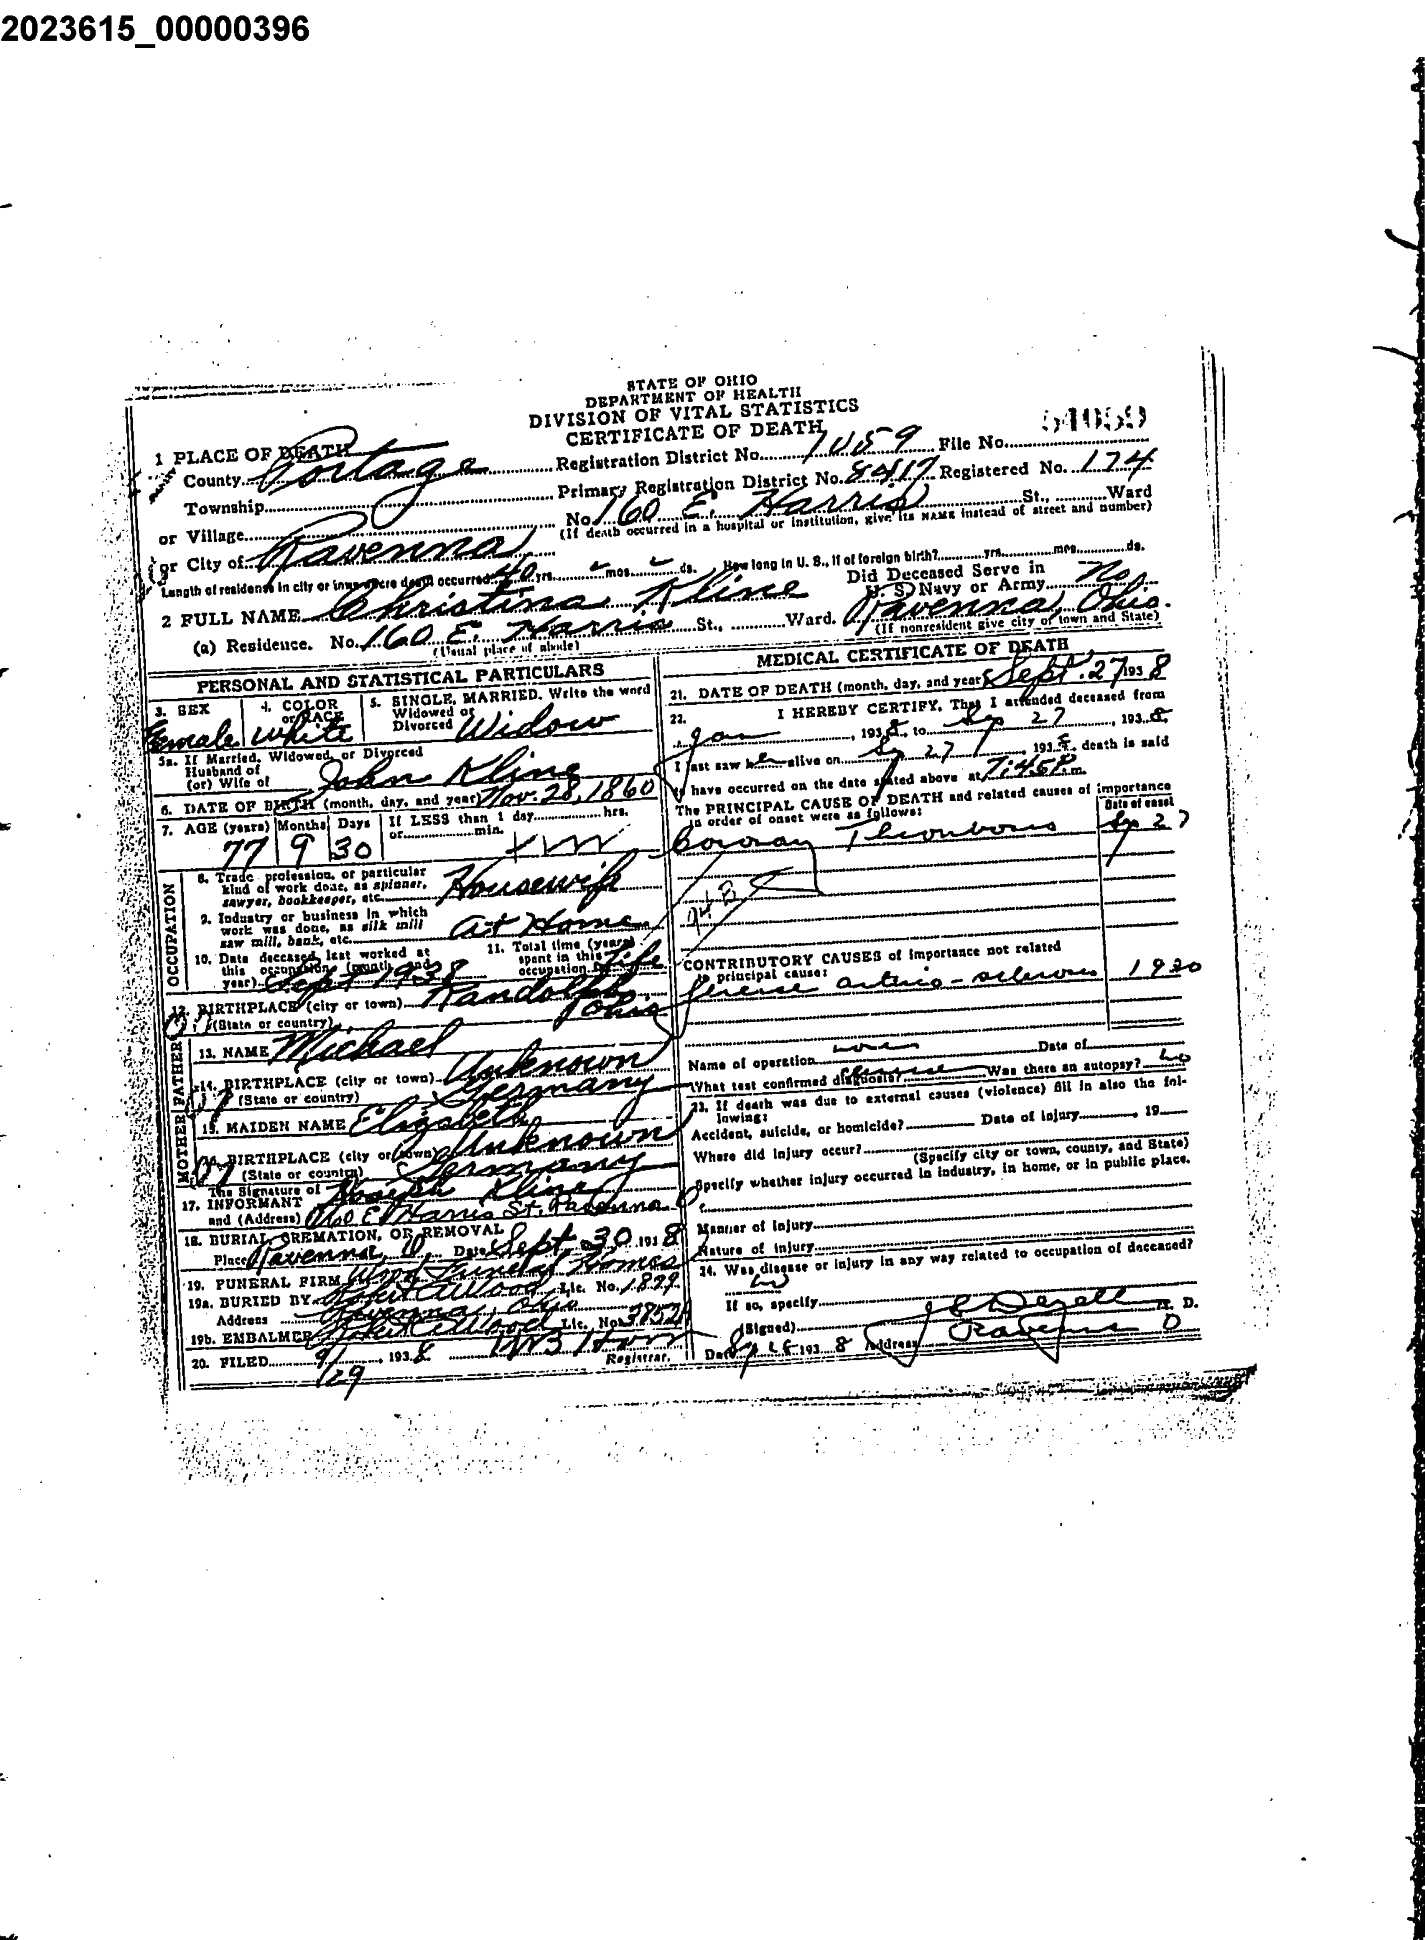 2023615_00000396
STATE OF OHIO
DEPARTMENT OF HEALTH
DIVISION OF VITAL STATISTICS
CERTIFICATE OF DEATH
54059
1 PLACE OF DEATH
County Portage Registration District No. 1059 File No.
Township Primary Registration District No. 8417 Registered No. 174
or Village No. 160 E. Harris St., Ward
(If death occurred in a hospital or institution, give its NAME instead of street and number)
or City of Ravenna
Length of residence in city or town where death occurred 40 yrs. mos. ds. How long in U. S., if of foreign birth? yrs. mos. ds.
2 FULL NAME Christina Kline Did Deceased Serve in U. S. Navy or Army No
(a) Residence. No. 160 E. Harris St., Ward. Ravenna, Ohio.
(Usual place of abode) (If nonresident give city or town and State)
PERSONAL AND STATISTICAL PARTICULARS
3. SEX Female
4. COLOR or RACE White
5. SINGLE, MARRIED, Write the word Widowed or Divorced Widow
5a. If Married, Widowed, or Divorced
Husband of
(or) Wife of John Kline
6. DATE OF BIRTH (month, day, and year) Nov. 28, 1860
7. AGE (years) 77 Months 9 Days 30 If LESS than 1 day hrs.
or min.
OCCUPATION
8. Trade profession, or particular
kind of work done, as spinner,
sawyer, bookkeeper, etc. Housewife
9. Industry or business in which
work was done, as silk mill
saw mill, bank, etc. At Home
10. Date deceased last worked at
this occupation (month and
year) Sept 1938
11. Total time (years)
spent in this
occupation Life
12. BIRTHPLACE (city or town) Randolph
(State or country) Ohio
FATHER
13. NAME Michael
14. BIRTHPLACE (city or town) Unknown
(State or country) Germany
MOTHER
15. MAIDEN NAME Elizabeth
16. BIRTHPLACE (city or town) Unknown
(State or country) Germany
The Signature of
17. INFORMANT Joseph Kline
and (Address) 160 E Harris St. Ravenna O.
18. BURIAL, CREMATION, OR REMOVAL
Place Ravenna, O. Date Sept. 30, 1938
19. FUNERAL FIRM Wood Funeral Homes
19a. BURIED BY Robert C Wood Lic. No. 1899
Address Ravenna, Ohio
19b. EMBALMER Robert C Wood Lic. No. 3852A
20. FILED 9/29, 1938
Registrar.
MEDICAL CERTIFICATE OF DEATH
21. DATE OF DEATH (month, day, and year) Sept. 27 1938
22. I HEREBY CERTIFY, That I attended deceased from
Jan, 1938, to Sep 27, 1938.
I last saw her alive on Sep 27, 1938, death is said
to have occurred on the date stated above at 7:45 P. m.
The PRINCIPAL CAUSE OF DEATH and related causes of importance
in order of onset were as follows: Date of onset
Coronary Thrombosis Sep 27
94B
CONTRIBUTORY CAUSES of importance not related
to principal cause:
arterio-sclerosis 1930
Name of operation none Date of
What test confirmed diagnosis? Was there an autopsy? no
23. If death was due to external causes (violence) fill in also the following:
Accident, suicide, or homicide? Date of injury, 19
Where did injury occur?
(Specify city or town, county, and State)
Specify whether injury occurred in industry, in home, or in public place.
Manner of injury
Nature of injury
24. Was disease or injury in any way related to occupation of deceased?
no
If so, specify
(Signed) M. D.
Date Sep 28 1938 Address Ravenna O